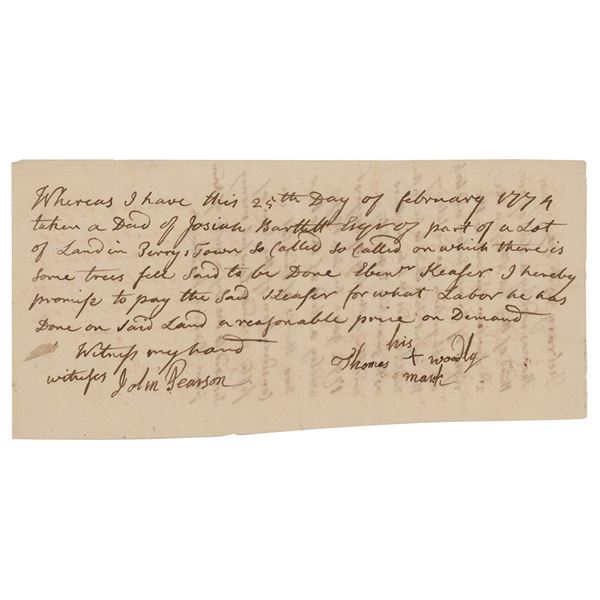 Whereas I have this 25th Day of february 1774
taken a Deed of Josiah Bartlett Esqr of part of a Lot
of Land in Perrys Town so Called so Called on which there is
some trees fell Said to be Done Ebenr Keaser I hereby
promise to pay the Said Keaser for what Labor he has
Done on Said Land a reasonable price on Demand
Witness my hand
witness John Pearson
his
Thomas + woodly
mark